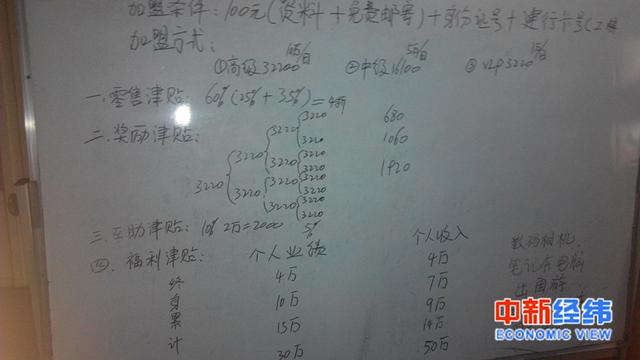 加盟条件：100元（资料+免费邮寄）+身份证号+建行卡号（工
加盟方式：
10万/日 5万/日 1万/日
①高级32200 ②中级16100 ③VIP3220
一.零售津贴：60%（25%+35%）=4折
二.奖励津贴：
3220 3220 3220 3220 680
3220 1060
3220 3220
3220 1920
3220 3220 3220
3220
3220 3220
3220
三.互助津贴：10% 2万=2000 5% 个人收入
四.福利津贴： 个人业绩 数码相机
终 4万 4万 笔记本电脑
身 10万 7万 出国游
累 15万 9万
计 30万 14万
50万
中新经纬
ECONOMIC VIEW